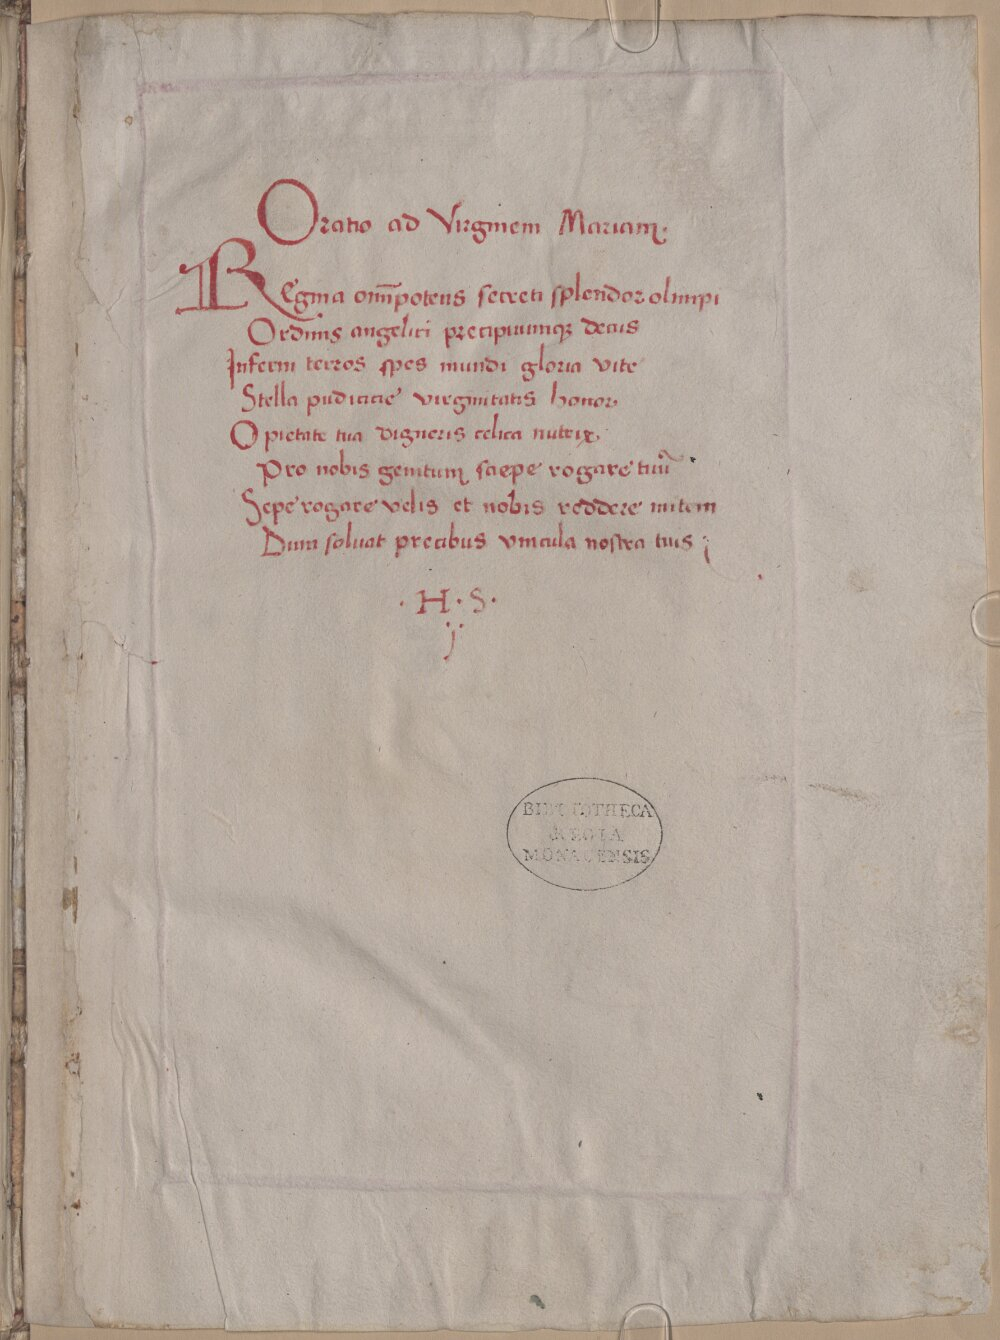 Oratio ad Virginem Mariam.
REgina om̅ipotens secreti splendor olimpi
Ordinis angelici precipuumqz decus
Inferni terros spes mundi gloria vite
Stella pudicicie virginitatis honor
O pietate tua digneris celica nutrix,
Pro nobis genitum saepe rogare tuu̅
Sepe rogare velis et nobis reddere mitem
Dum soluat precibus vincula nostra tuis ;
· H · S ·
BIBLIOTHECA
REGIA
MONACENSIS